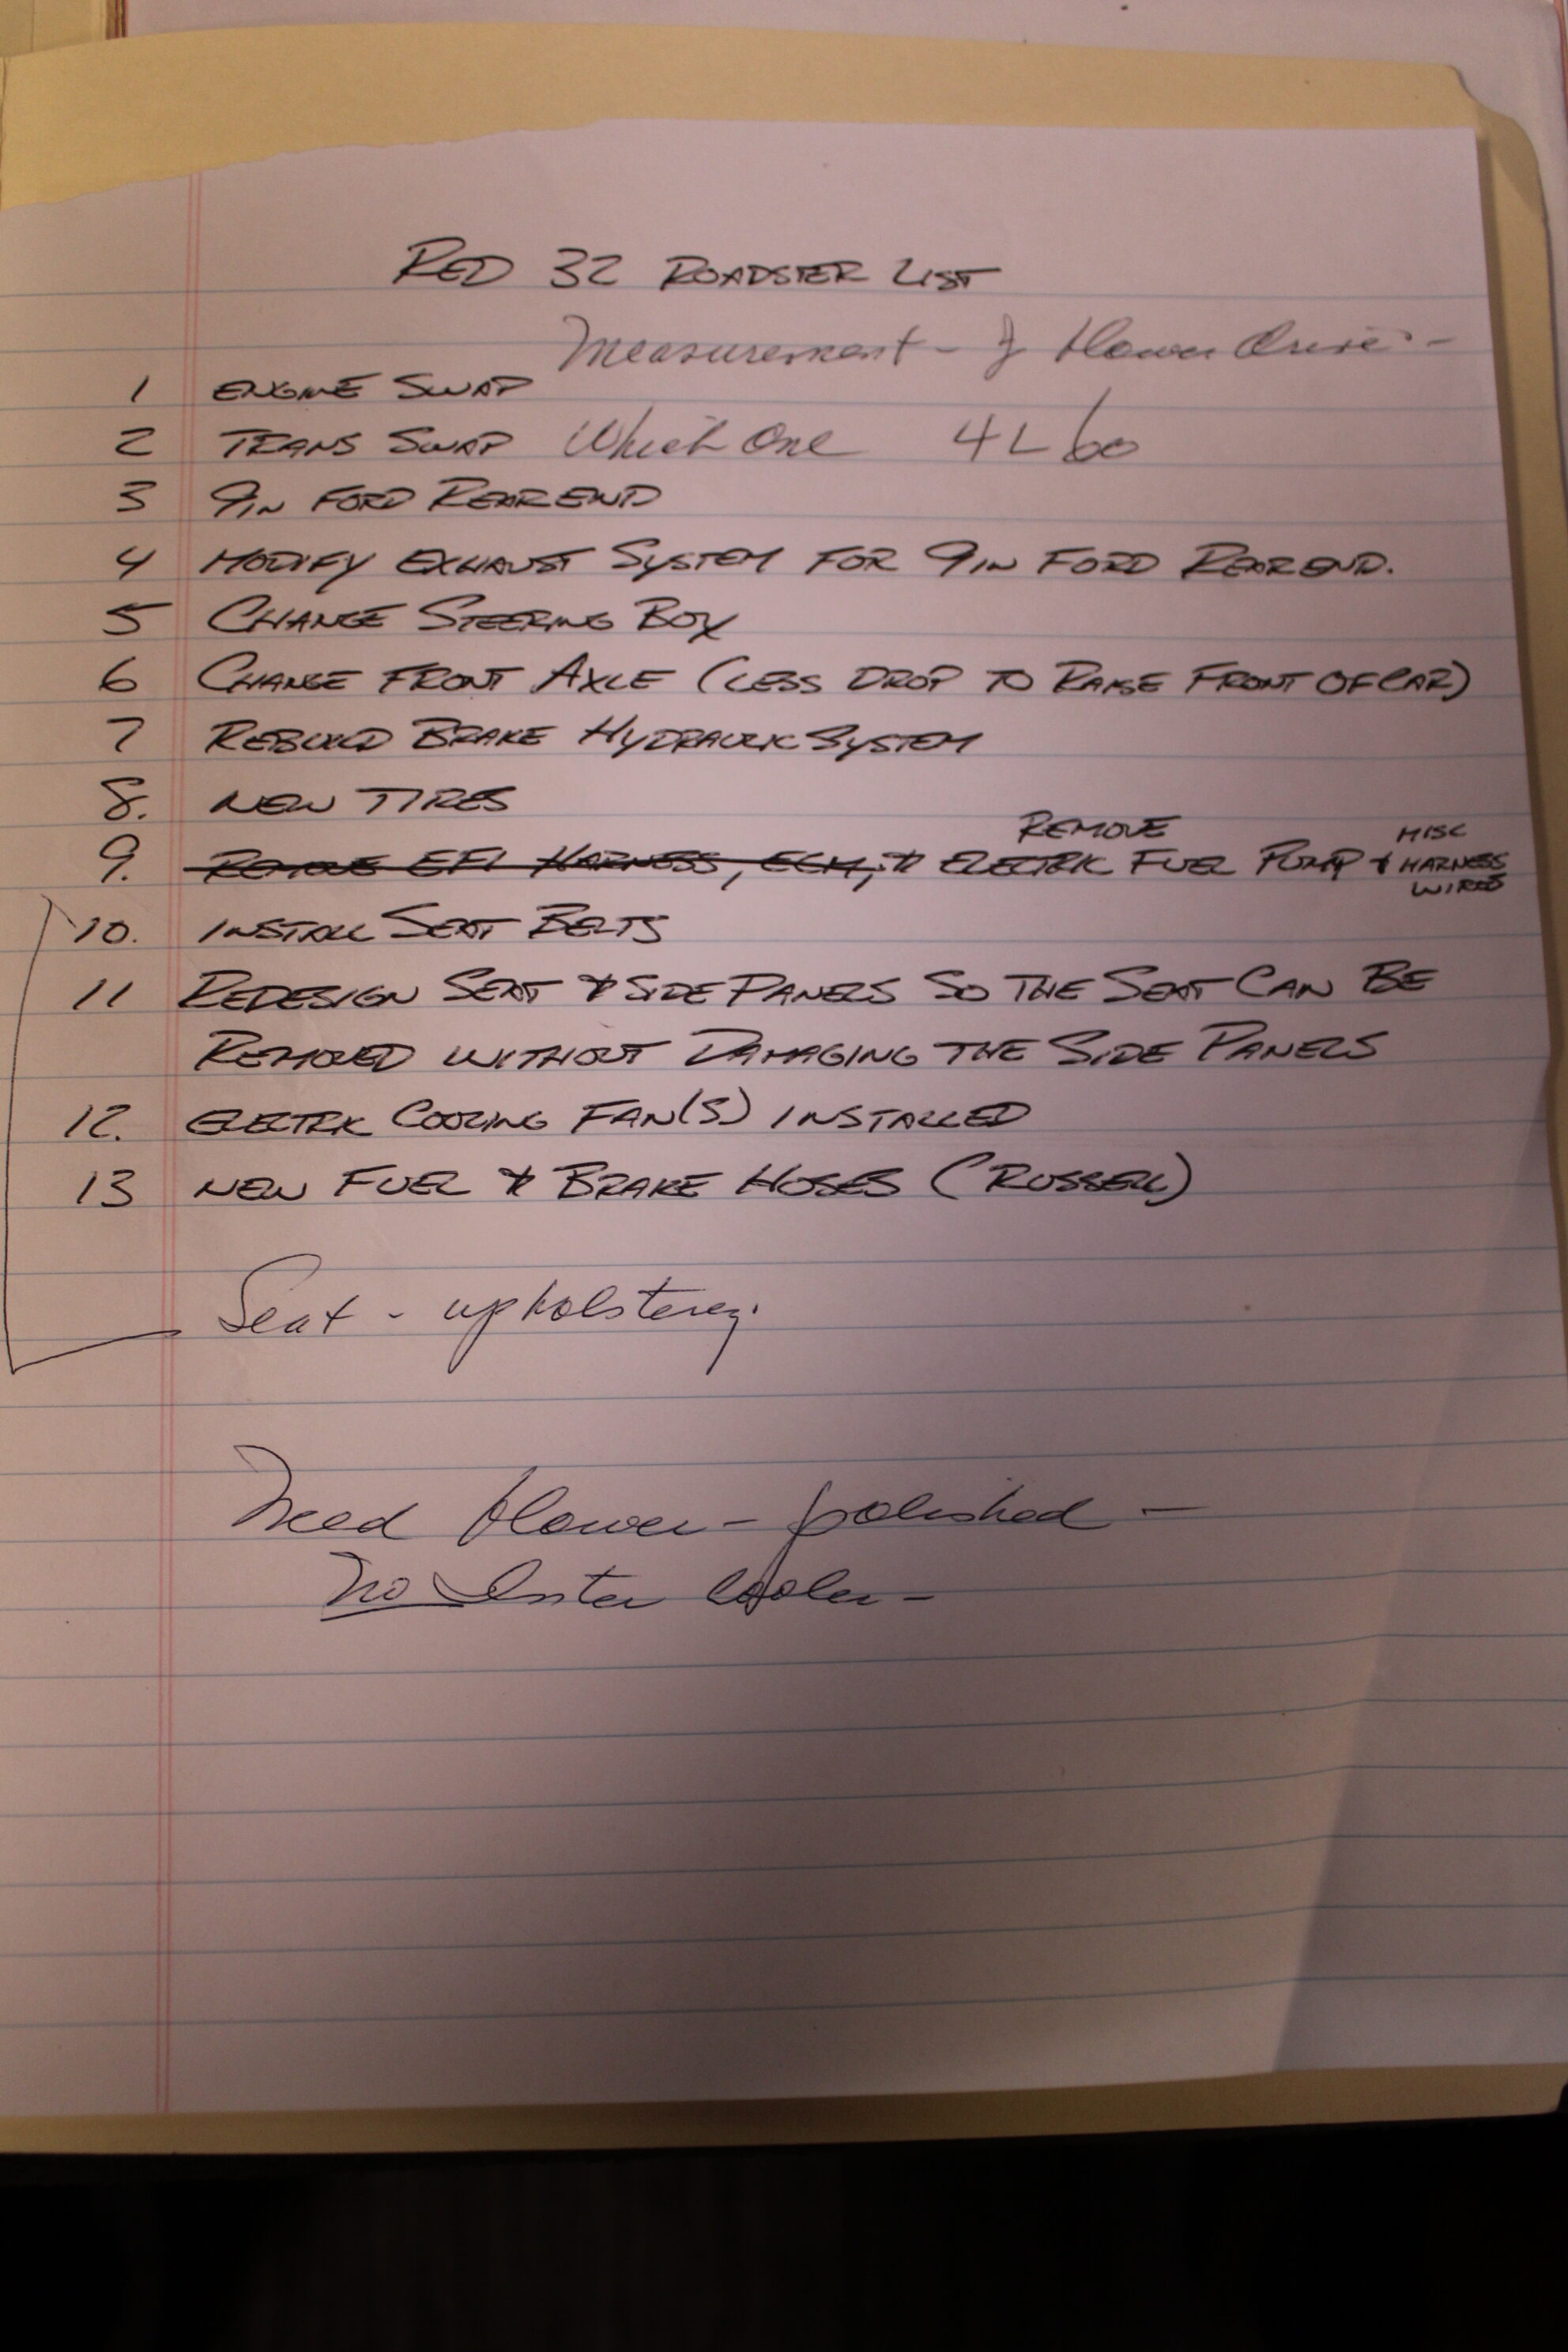 RED 32 ROADSTER LIST
Measurement - of blower Drive -
1 ENGINE SWAP
2 TRANS SWAP Which One 4L60
3 9IN FORD REAREND
4 MODIFY EXHAUST SYSTEM FOR 9IN FORD REAREND.
5 CHANGE STEERING BOX
6 CHANGE FRONT AXLE (LESS DROP TO RAISE FRONT OF CAR)
7 REBUILD BRAKE HYDRAULIC SYSTEM
8. NEW TIRES
REMOVE MISC
9. REMOVE EFI HARNESS, ECM, & ELECTRIC FUEL PUMP & HARNESS
WIRES
10. INSTALL SEAT BELTS
11 REDESIGN SEAT & SIDE PANELS SO THE SEAT CAN BE
REMOVED WITHOUT DAMAGING THE SIDE PANELS
12. ELECTRIC COOLING FAN(S) INSTALLED
13 NEW FUEL & BRAKE HOSES (RUSSELL)
Seat - upholsterey.
Need blower - polished -
no Inter Cooler -